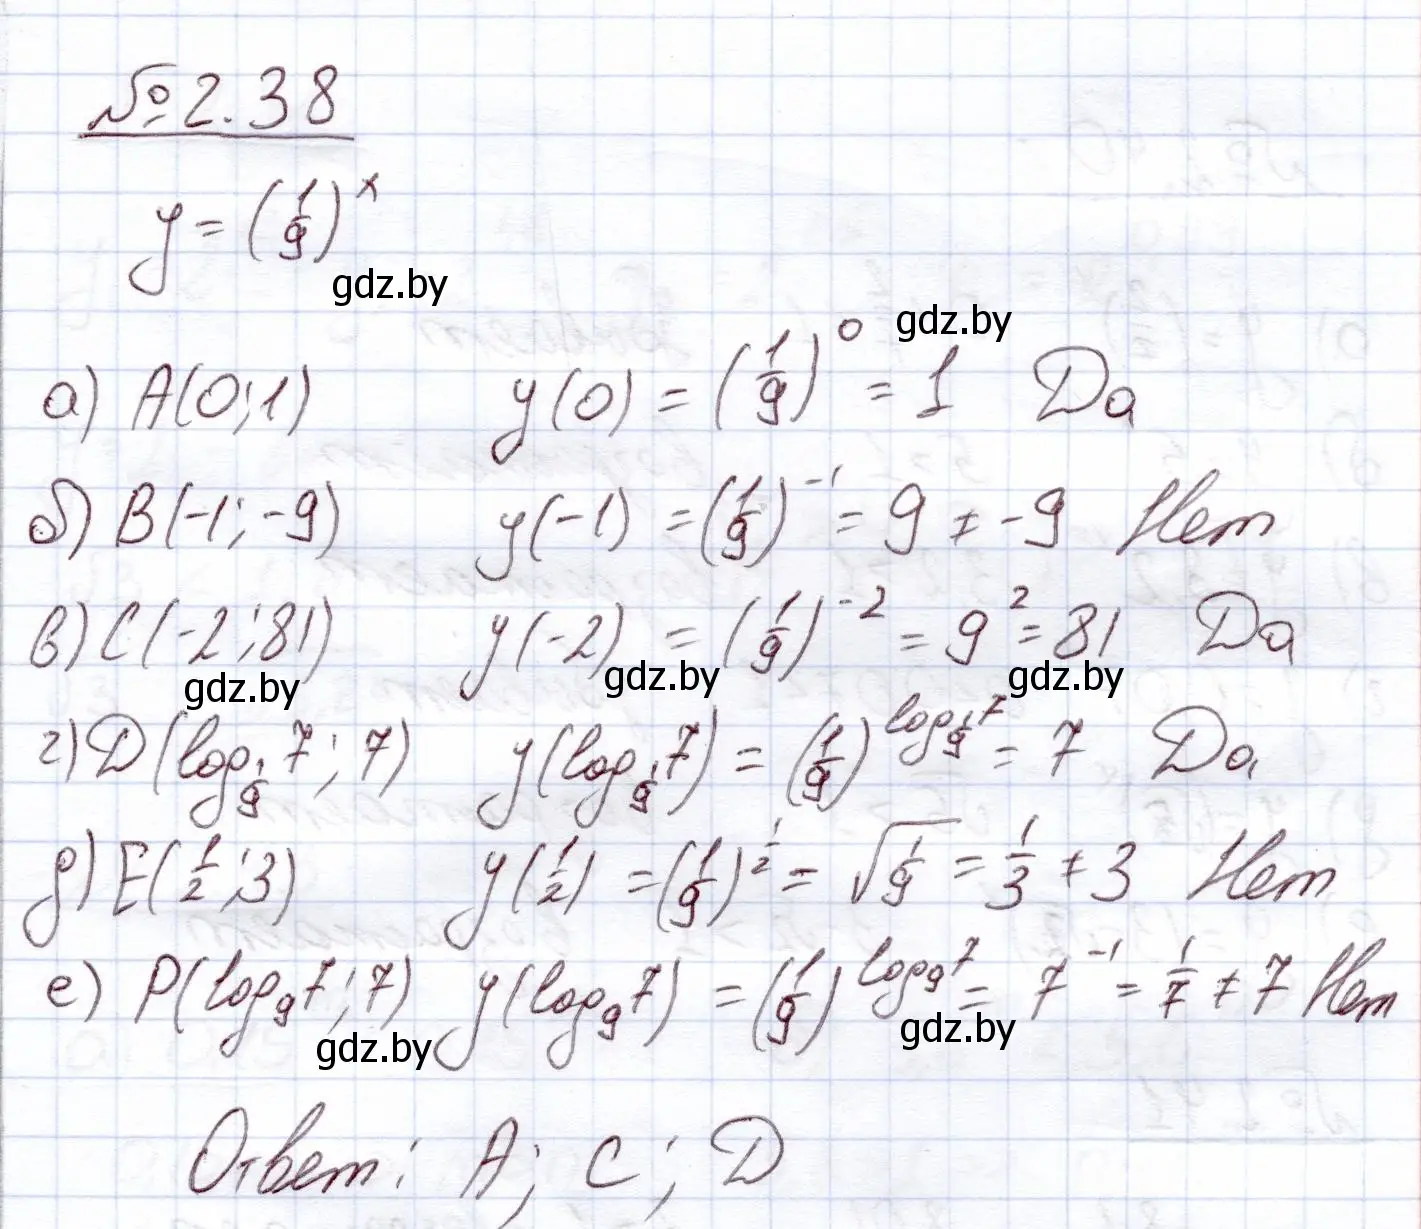 №2.38
y = (1/9)^x
gdz.by
gdz.by
а) A(0;1) y(0) = (1/9)^0 = 1 Да
б) B(-1;-9) y(-1) = (1/9)^-1 = 9 ≠ -9 Нет
в) C(-2;81) y(-2) = (1/9)^-2 = 9^2 = 81 Да
gdz.by gdz.by gdz.by
г) D(log_1/9 7; 7) y(log_1/9 7) = (1/9)^log_1/9 7 = 7 Да
д) E(1/2;3) y(1/2) = (1/9)^1/2 = √1/9 = 1/3 ≠ 3 Нет
е) P(log_9 7; 7) y(log_9 7) = (1/9)^log_9 7 = 7^-1 = 1/7 ≠ 7 Нет
gdz.by gdz.by
Ответ: A; C; D